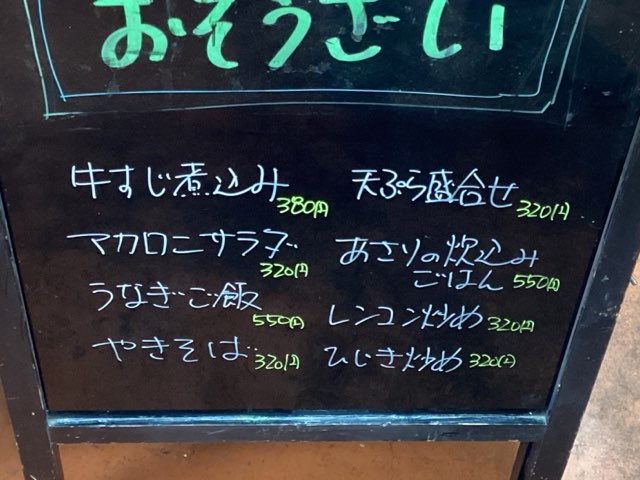 おそうざい
牛すじ煮込み
380円
マカロニサラダ
320円
うなぎご飯
550円
やきそば 320円
天ぷら盛合せ
320円
あさりの炊込み
ごはん 550円
レンコン炒め 320円
ひじき炒め 320円